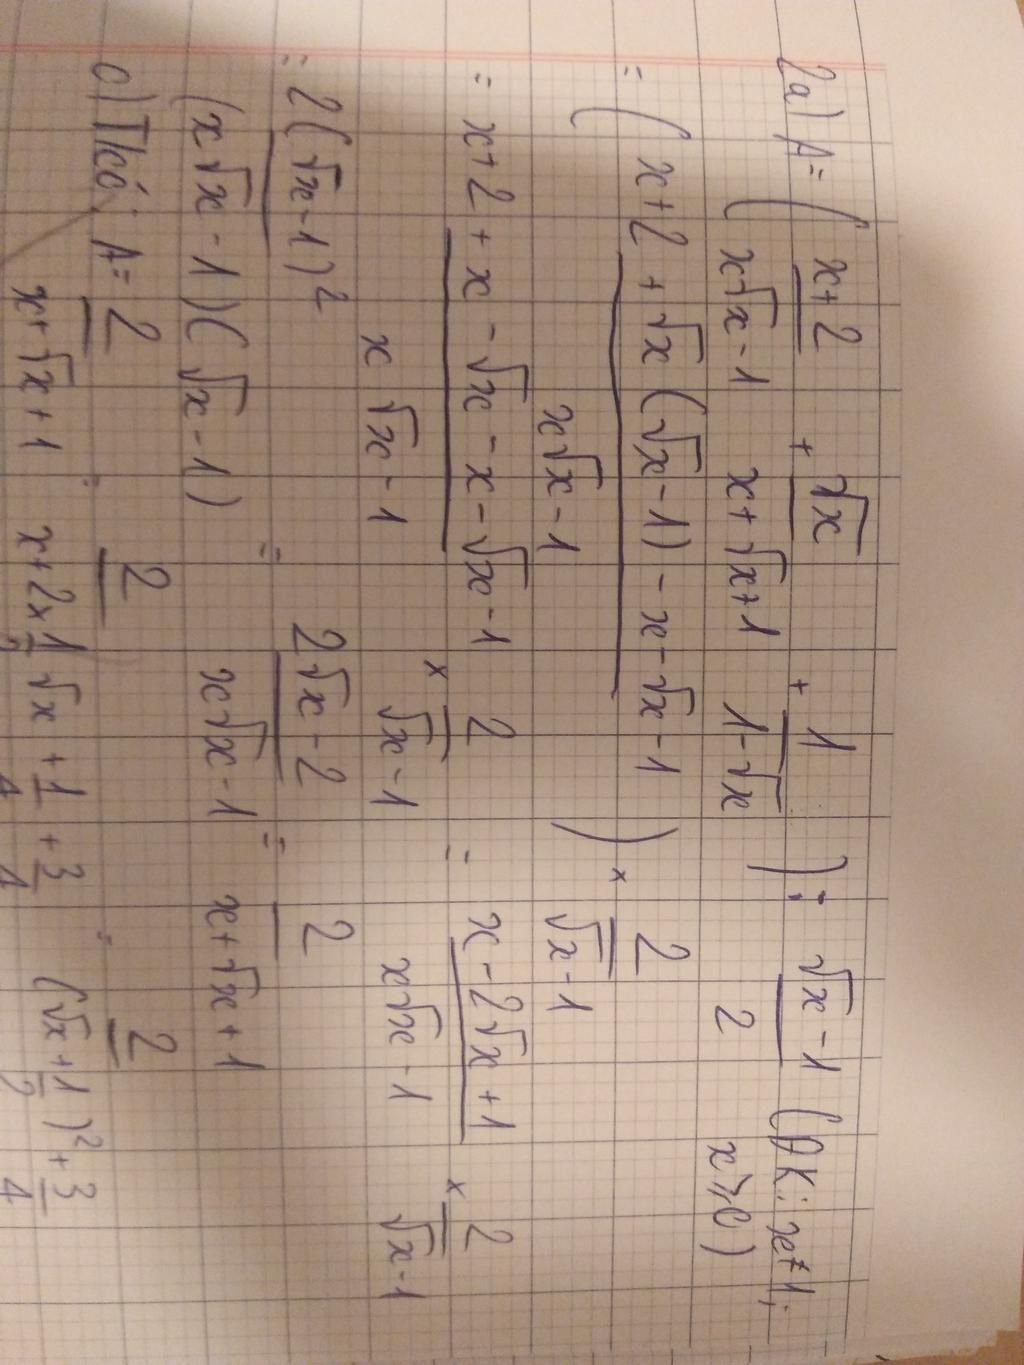 2a) A = ( x+2 / x√x - 1 + √x / x+√x+1 + 1 / 1-√x ) : √x - 1 / 2 (ĐK: x≠1; x⩾0)
= ( x+2 + √x (√x - 1) - x - √x - 1 / x√x - 1 ) x 2 / √x - 1
= x+2 + x - √x - x - √x - 1 / x√x - 1 x 2 / √x - 1 = x - 2√x + 1 / x√x - 1 x 2 / √x - 1
= 2(√x - 1)² / (x√x - 1)(√x - 1) = 2√x - 2 / x√x - 1 = 2 / x+√x+1
c) Ta có: A = 2 / x+√x+1 = 2 / x+2x 1/2 √x + 1/4 + 3/4 = 2 / (√x + 1/2)² + 3/4